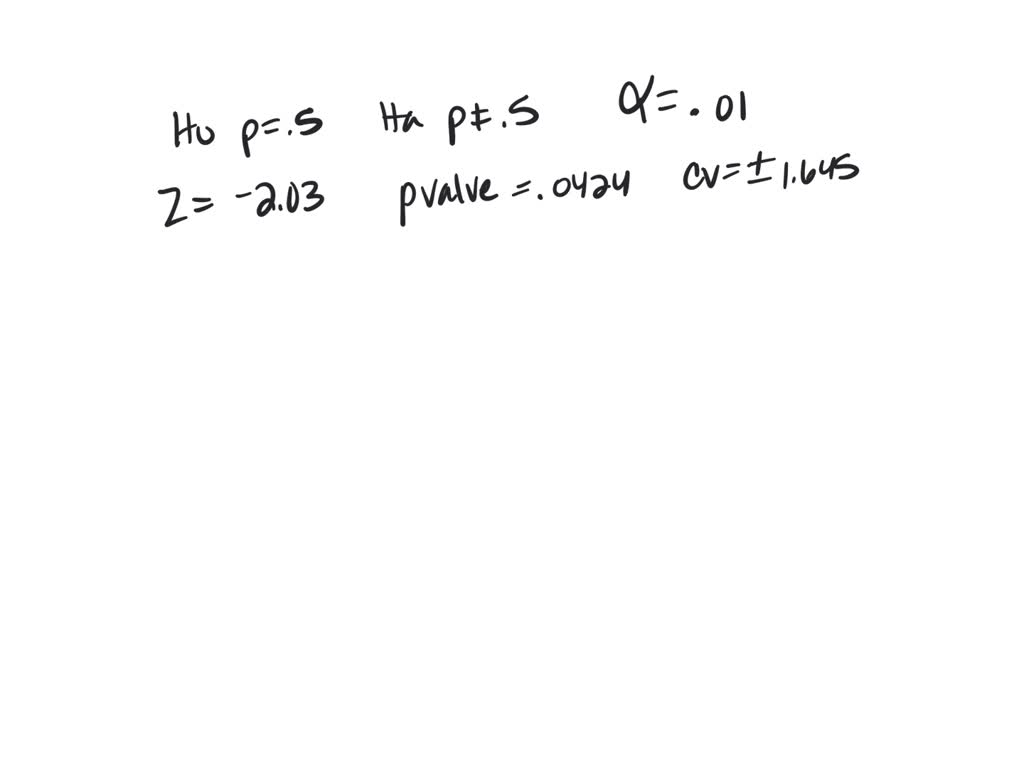 Ho p=.5 Ha p≠.5 α=.01
Z=-2.03 pvalve=.0424 cv=±1.645